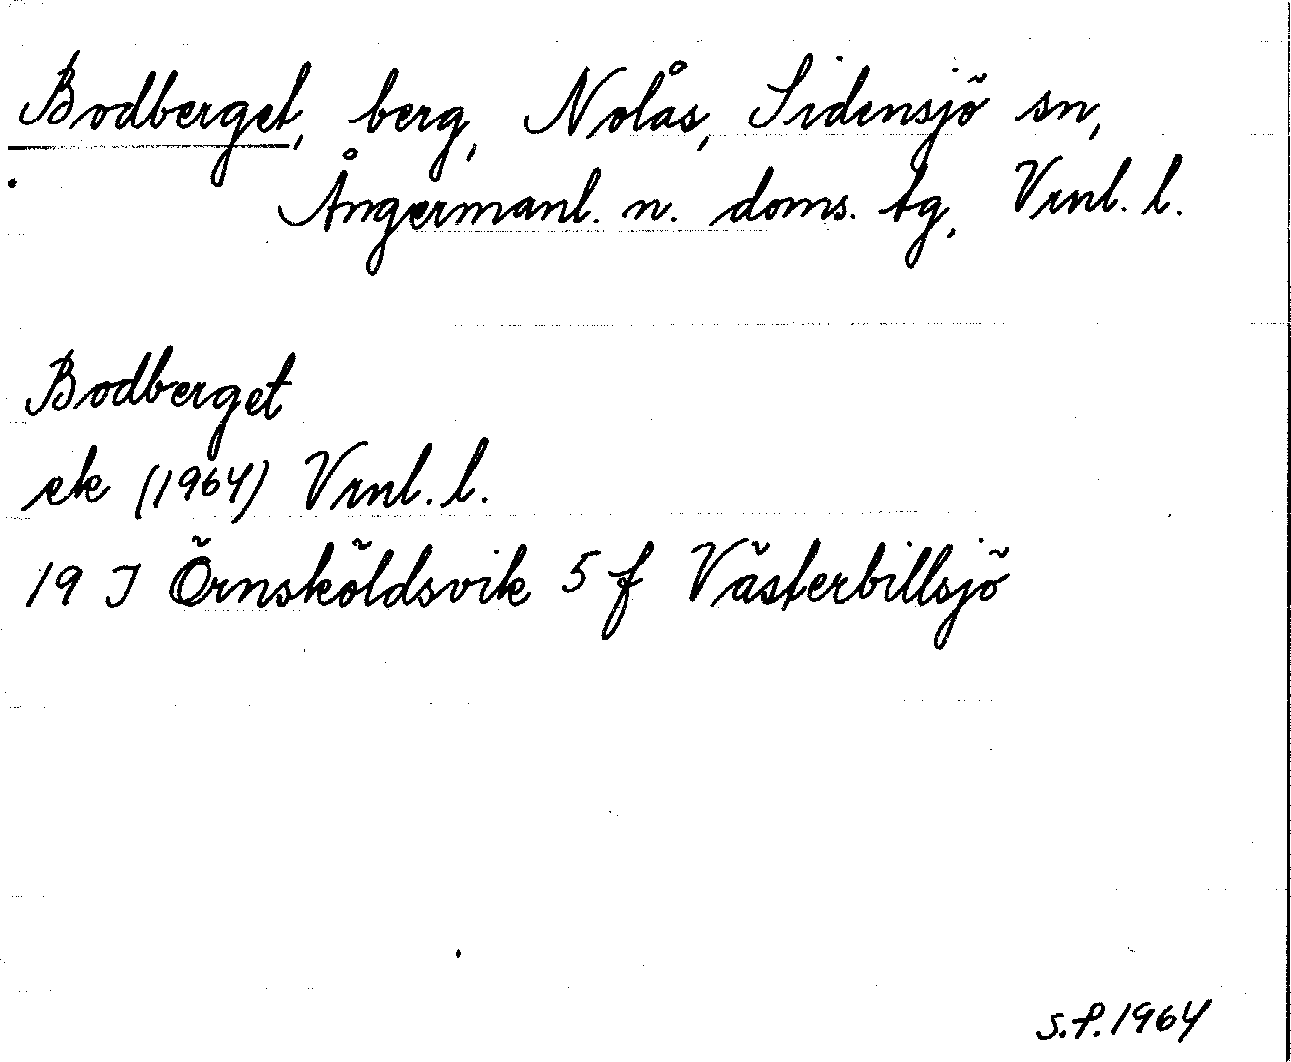 Bodberget, berg, Nolås, Sidensjö sn,
Ångermanl. n. doms. tg, Vrnl. l.
Bodberget
ek (1964) Vrnl. l.
19 J Örnsköldsvik 5 f Västerbillsjö
S.P. 1964